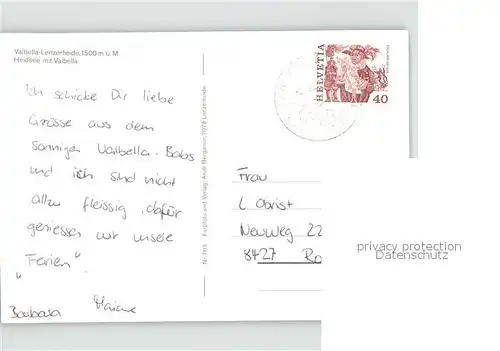 Valbella-Lenzerheide, 1500 m ü. M
Heidsee mit Valbella
Ich schicke Dir liebe
Grüsse aus dem
sonnigen Valbella. Babs
und ich sind nicht
allzu fleissig, dafür
geniessen wir unsere
Ferien
"
"
Barbara
Nr. 7113 Farbfoto und Verlag: Andr. Bergamin, 7078 Lenzerheide
HELVETIA
40
Frau
L Obrist
Neuweg 22
8427 Ro
privacy protection
Datenschutz